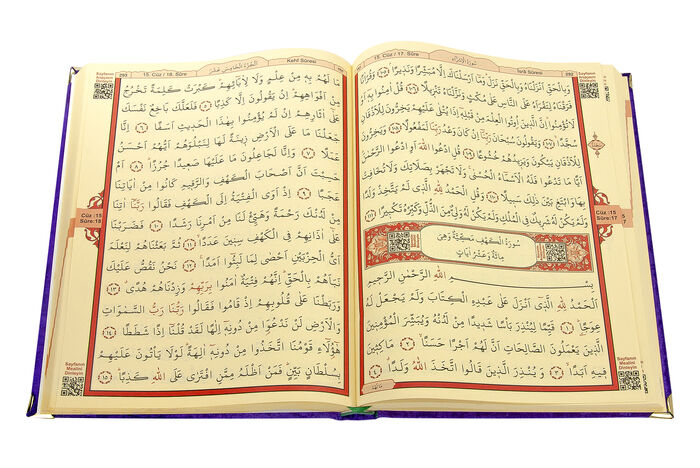 15. Cüz / 17. Sûre
سُورَةُ الْاِسْرَاءِ
İsrâ Sûresi
292
وَبِالْحَقِّ اَنْزَلْنَاهُ وَبِالْحَقِّ نَزَلَ وَمَٓا اَرْسَلْنَاكَ اِلَّا مُبَشِّرًا وَنَذِيرًا ﴿١٠٥﴾ وَقُرْاٰنًا
فَرَقْنَاهُ لِتَقْرَاَهُ عَلَى النَّاسِ عَلٰى مُكْثٍ وَنَزَّلْنَاهُ تَنْزِيلًا ﴿١٠٦﴾ قُلْ اٰمِنُوا بِهِٓ
اَوْ لَا تُؤْمِنُوا اِنَّ الَّذِينَ اُوتُوا الْعِلْمَ مِنْ قَبْلِهِٓ اِذَا يُتْلٰى عَلَيْهِمْ يَخِرُّونَ لِلْاَذْقَانِ سُجَّدًا ﴿١٠٧﴾
وَيَقُولُونَ سُبْحَانَ رَبِّنَٓا اِنْ كَانَ وَعْدُ رَبِّنَا لَمَفْعُولًا ﴿١٠٨﴾ وَيَخِرُّونَ
لِلْاَذْقَانِ يَبْكُونَ وَيَزِيدُهُمْ خُشُوعًا ﴿١٠٩﴾ قُلِ ادْعُوا اللّٰهَ اَوِ ادْعُوا الرَّحْمٰنَ
اَيًّا مَا تَدْعُوا فَلَهُ الْاَسْمَٓاءُ الْحُسْنٰى وَلَا تَجْهَرْ بِصَلَاتِكَ وَلَا تُخَافِتْ
بِهَا وَابْتَغِ بَيْنَ ذٰلِكَ سَبِيلًا ﴿١١٠﴾ وَقُلِ الْحَمْدُ لِلّٰهِ الَّذِي لَمْ يَتَّخِذْ وَلَدًا
وَلَمْ يَكُنْ لَهُ شَرِيكٌ فِي الْمُلْكِ وَلَمْ يَكُنْ لَهُ وَلِيٌّ مِنَ الذُّلِّ وَكَبِّرْهُ تَكْبِيرًا ﴿١١١﴾
سُورَةُ الْكَهْفِ مَكِّيَّةٌ وَهِيَ
مِائَةٌ وَعَشْرُ اٰيَاتٍ
بِسْمِ اللّٰهِ الرَّحْمٰنِ الرَّحِيمِ
اَلْحَمْدُ لِلّٰهِ الَّذِٓي اَنْزَلَ عَلٰى عَبْدِهِ الْكِتَابَ وَلَمْ يَجْعَلْ لَهُ
عِوَجًا ﴿١﴾ قَيِّمًا لِيُنْذِرَ بَاْسًا شَدِيدًا مِنْ لَدُنْهُ وَيُبَشِّرَ الْمُؤْمِنِينَ
الَّذِينَ يَعْمَلُونَ الصَّالِحَاتِ اَنَّ لَهُمْ اَجْرًا حَسَنًا ﴿٢﴾ مَاكِثِينَ
فِيهِ اَبَدًا ﴿٣﴾ وَيُنْذِرَ الَّذِينَ قَالُوا اتَّخَذَ اللّٰهُ وَلَدًا ﴿٤﴾
مَا لَهُمْ
Cüz :15
Sûre:17
293
15. Cüz / 18. Sûre
اَلْجُزْءُ الْخَامِسَ عَشَرَ
Kehf Sûresi
مَا لَهُمْ بِهِ مِنْ عِلْمٍ وَلَا لِاٰبَٓائِهِمْ كَبُرَتْ كَلِمَةً تَخْرُجُ
مِنْ اَفْوَاهِهِمْ اِنْ يَقُولُونَ اِلَّا كَذِبًا ﴿٥﴾ فَلَعَلَّكَ بَاخِعٌ نَفْسَكَ
عَلٰٓى اٰثَارِهِمْ اِنْ لَمْ يُؤْمِنُوا بِهٰذَا الْحَدِيثِ اَسَفًا ﴿٦﴾ اِنَّا
جَعَلْنَا مَا عَلَى الْاَرْضِ زِينَةً لَهَا لِنَبْلُوَهُمْ اَيُّهُمْ اَحْسَنُ
عَمَلًا ﴿٧﴾ وَاِنَّا لَجَاعِلُونَ مَا عَلَيْهَا صَعِيدًا جُرُزًا ﴿٨﴾ اَمْ
حَسِبْتَ اَنَّ اَصْحَابَ الْكَهْفِ وَالرَّقِيمِ كَانُوا مِنْ اٰيَاتِنَا
عَجَبًا ﴿٩﴾ اِذْ اَوَى الْفِتْيَةُ اِلَى الْكَهْفِ فَقَالُوا رَبَّنَٓا اٰتِنَا
مِنْ لَدُنْكَ رَحْمَةً وَهَيِّئْ لَنَا مِنْ اَمْرِنَا رَشَدًا ﴿١٠﴾ فَضَرَبْنَا
عَلٰٓى اٰذَانِهِمْ فِي الْكَهْفِ سِنِينَ عَدَدًا ﴿١١﴾ ثُمَّ بَعَثْنَاهُمْ لِنَعْلَمَ
اَيُّ الْحِزْبَيْنِ اَحْصٰى لِمَا لَبِثُٓوا اَمَدًا ﴿١٢﴾ نَحْنُ نَقُصُّ عَلَيْكَ
نَبَاَهُمْ بِالْحَقِّ اِنَّهُمْ فِتْيَةٌ اٰمَنُوا بِرَبِّهِمْ وَزِدْنَاهُمْ هُدًى ﴿١٣﴾
وَرَبَطْنَا عَلٰى قُلُوبِهِمْ اِذْ قَامُوا فَقَالُوا رَبُّنَا رَبُّ السَّمٰوَاتِ
وَالْاَرْضِ لَنْ نَدْعُوَا مِنْ دُونِهِٓ اِلٰهًا لَقَدْ قُلْنَٓا اِذًا شَطَطًا ﴿١٤﴾
هٰٓؤُلَٓاءِ قَوْمُنَا اتَّخَذُوا مِنْ دُونِهِٓ اٰلِهَةً لَوْلَا يَاْتُونَ عَلَيْهِمْ
بِسُلْطَانٍ بَيِّنٍ فَمَنْ اَظْلَمُ مِمَّنِ افْتَرٰى عَلَى اللّٰهِ كَذِبًا ﴿١٥﴾
Sayfanın
Arapçasını
Dinleyin
Cüz :15
Sûre:18
Sayfanın
Mealini
Dinleyin